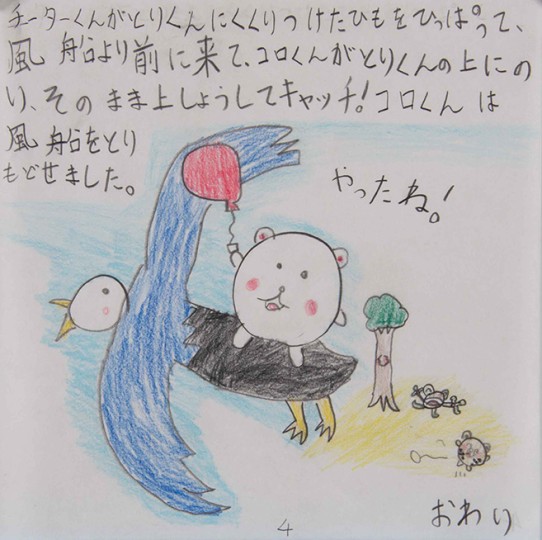 チーターくんがとりくんにくくりつけたひもをひっぱって、
風船より前に来て、コロくんがとりくんの上にの
り、そのまま上しょうしてキャッチ!コロくんは
風船をとり
もどせました。
やったね!
おわり
4